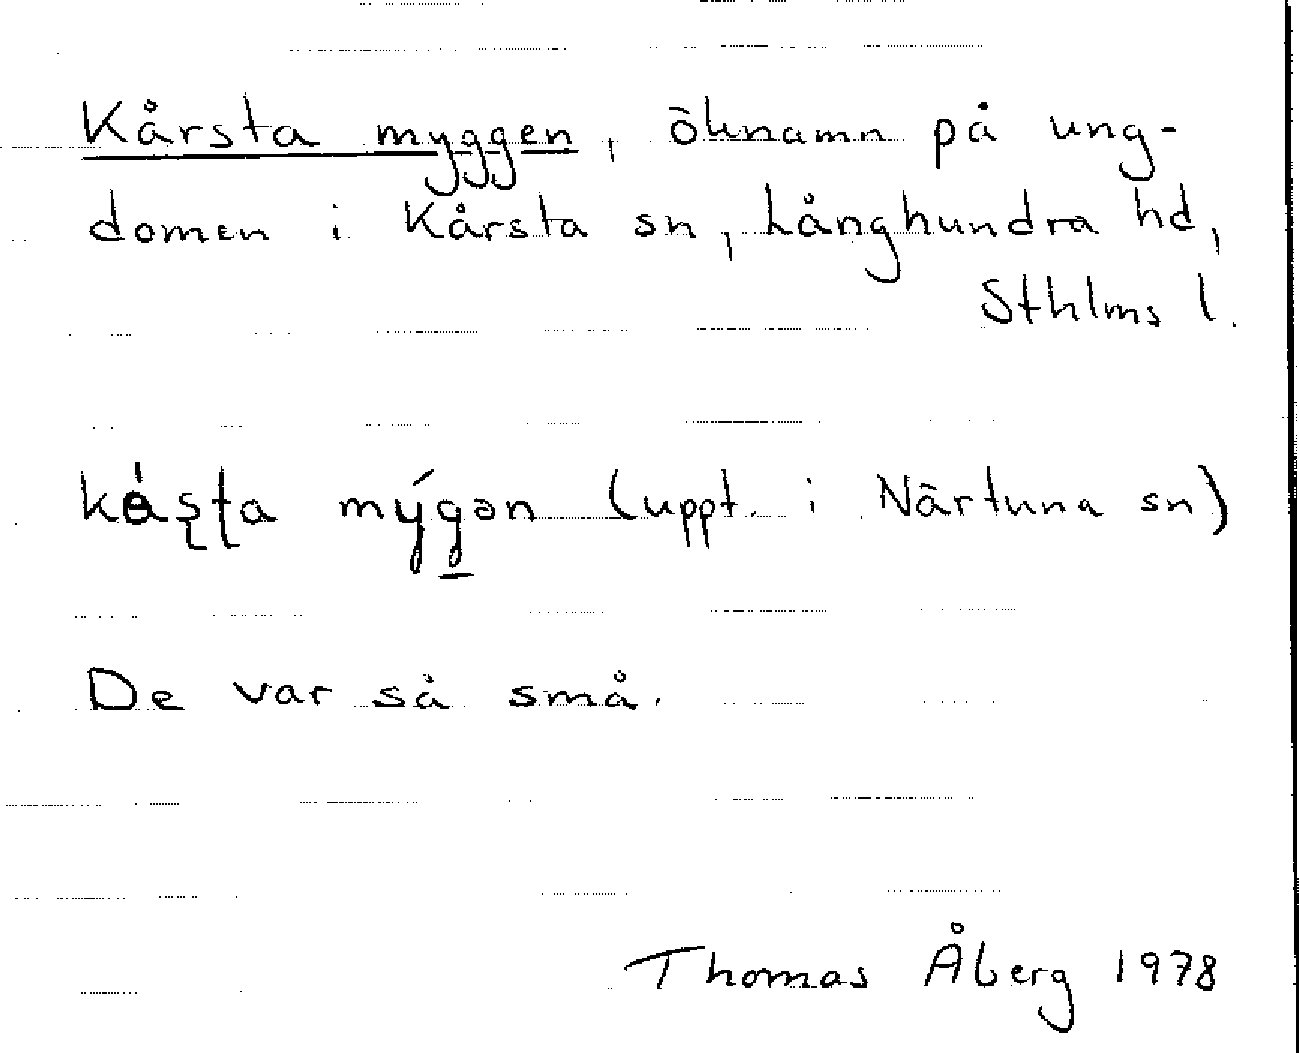 Kårsta myggen, öknamn på ung-
domen i Kårsta sn, Långhundra hd,
Sthlms l.
mýgən (uppt. i Närtuna sn)
De var så små.
Thomas Åberg 1978